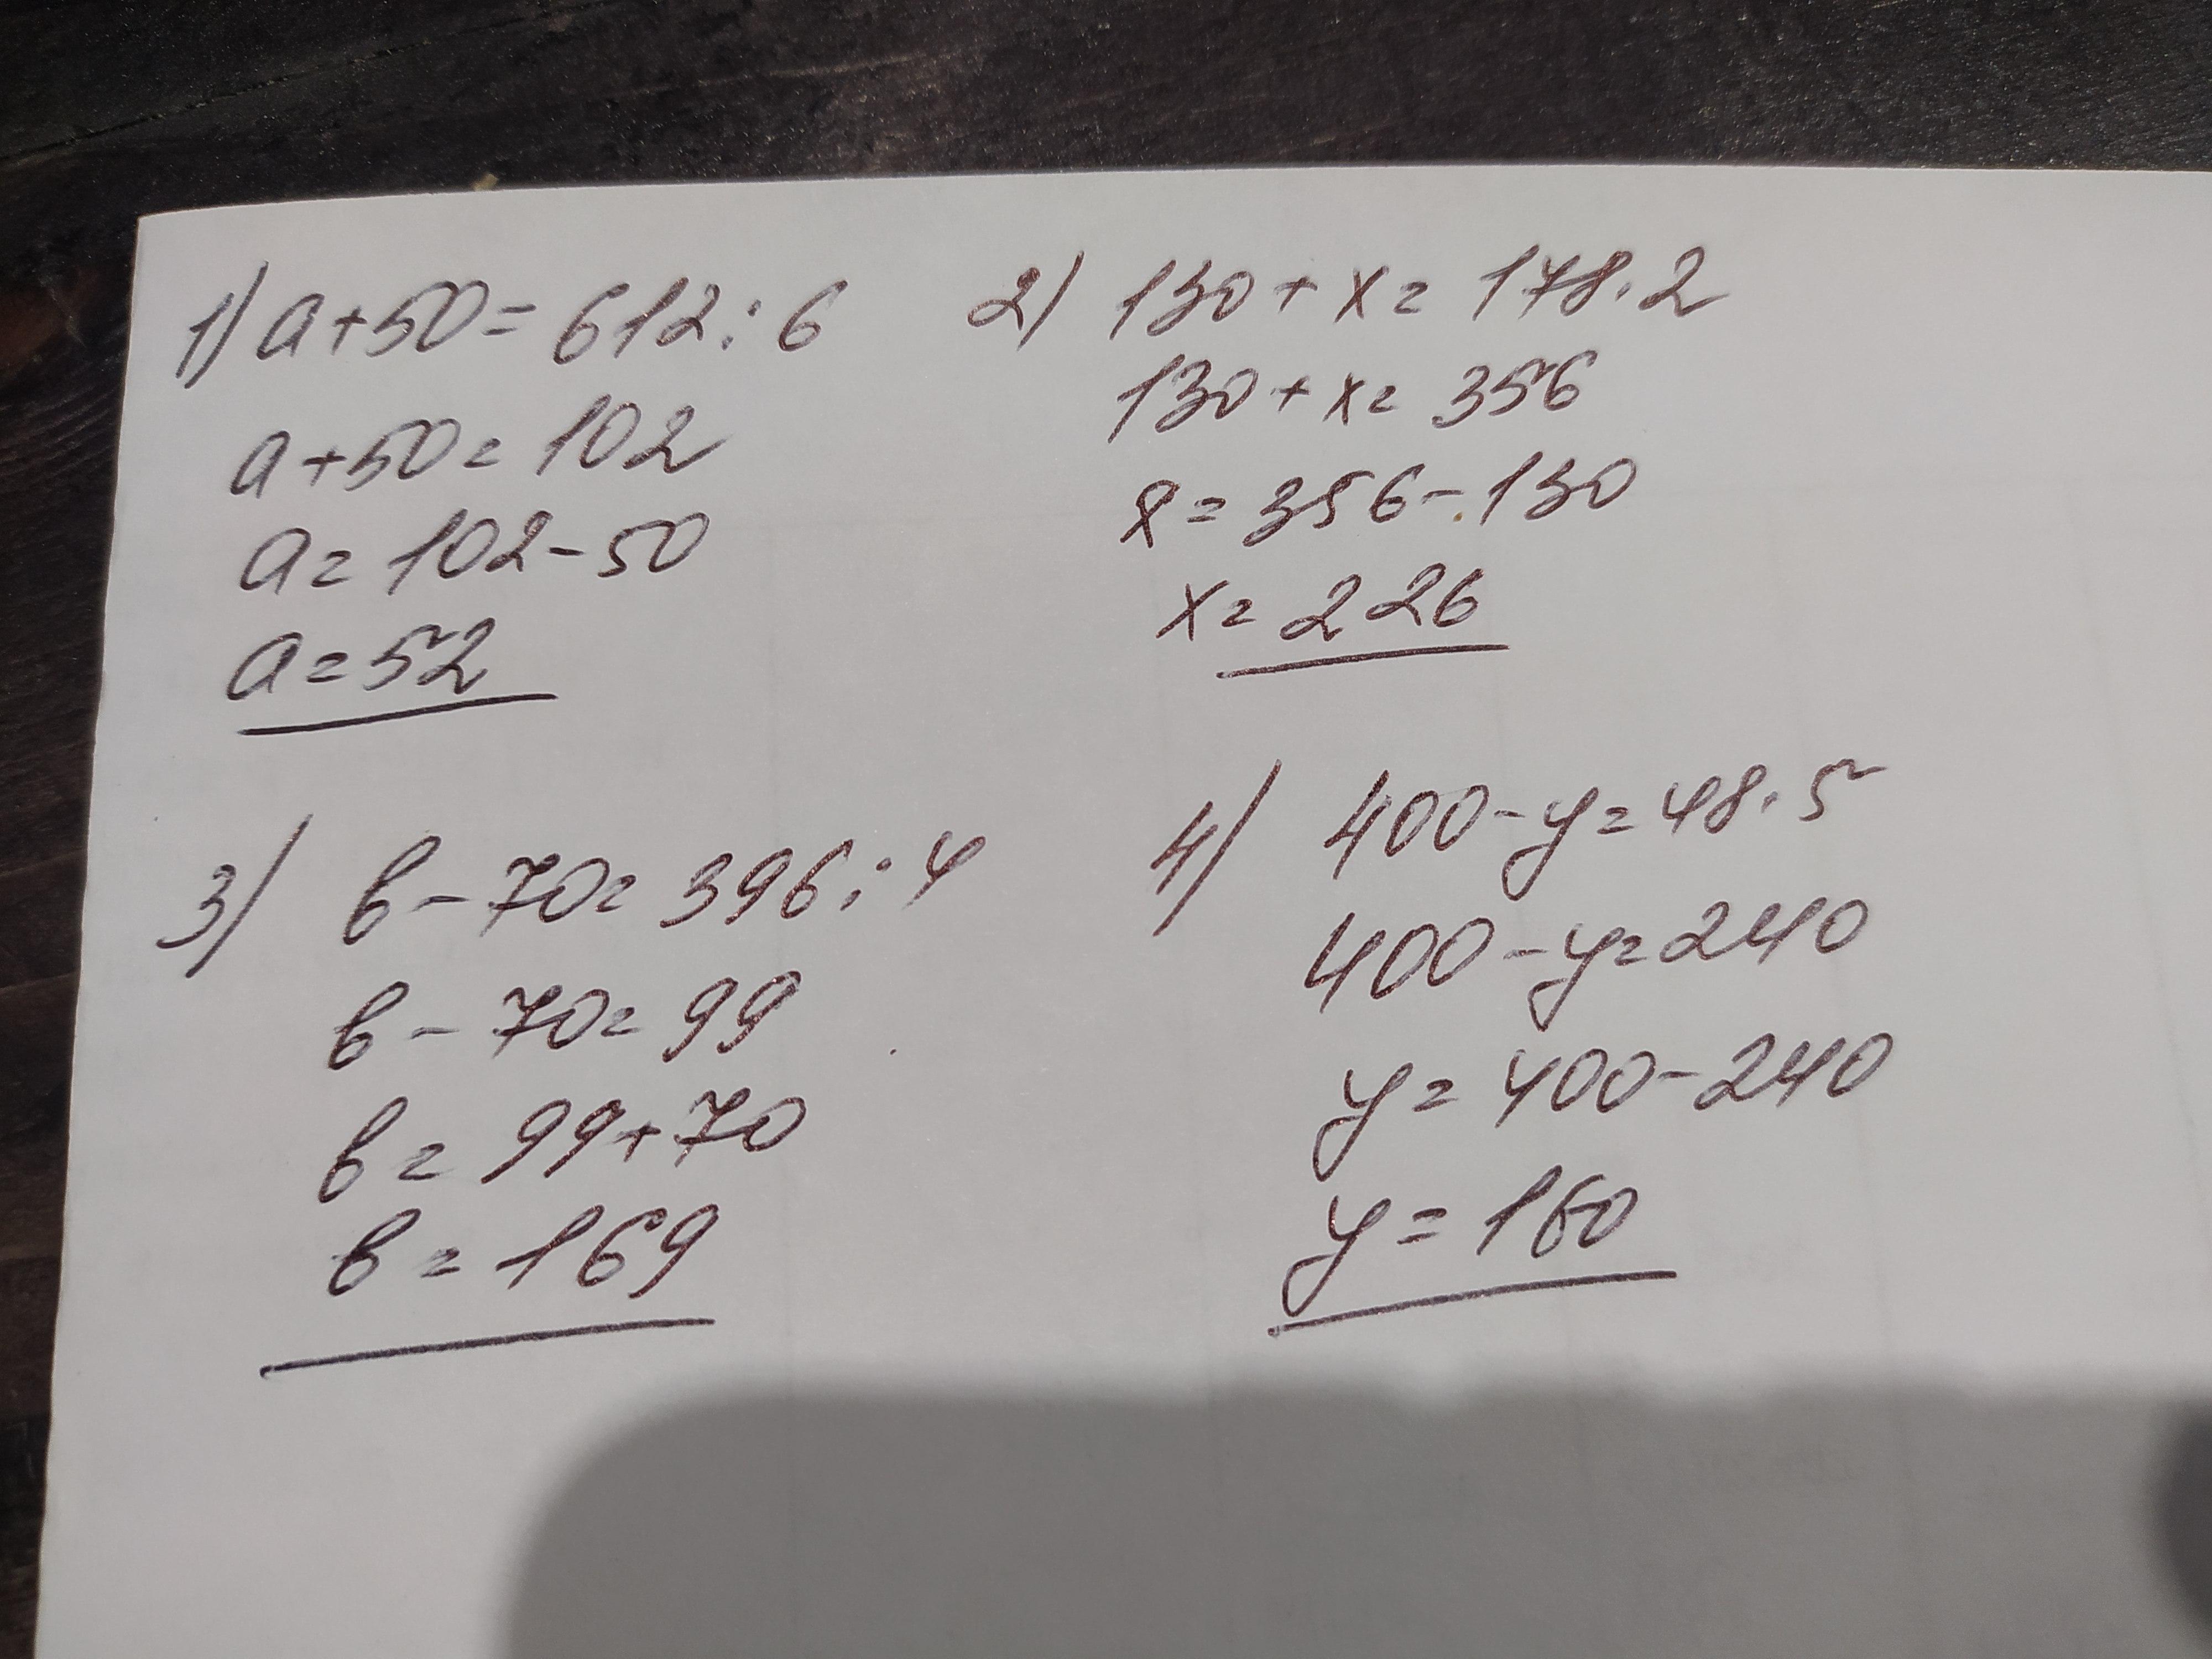 1) a+50=612:6
a+50=102
a=102-50
a=52
2) 130+x=178·2
130+x=356
x=356-130
x=226
3) в-70=396:4
в-70=99
в=99+70
в=169
4) 400-y=48·5
400-y=240
y=400-240
y=160